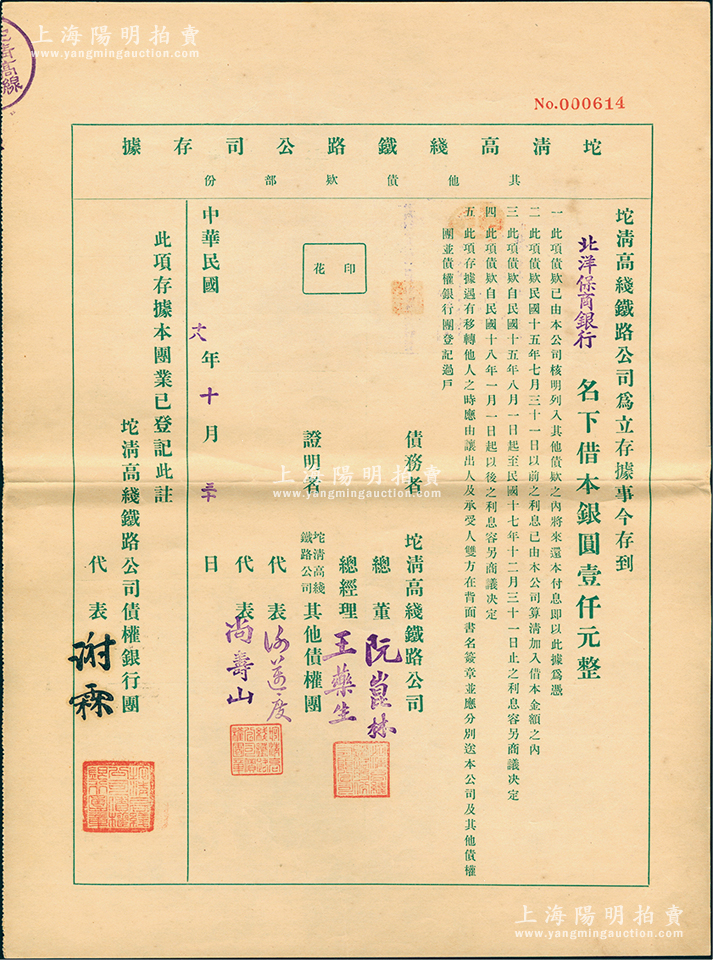 上海陽明拍賣
www.yangmingauction.com
No.000614
坨清高綫鐵路公司存據
其他債欵部份
坨清高綫鐵路公司爲立存據事今存到
北洋保商銀行 名下借本銀圓壹仟元整
一 此項債欵已由本公司核明列入其他債欵之內將來還本付息即以此據爲憑
二 此項債欵民國十五年七月三十一日以前之利息已由本公司算清加入借本金額之內
三 此項債欵自民國十五年八月一日起至民國十七年十二月三十一日止之利息容另商議决定
四 此項債欵自民國十八年一月一日起以後之利息容另商議决定
五 此項存據遇有移轉他人之時應由讓出人及承受人雙方在背面書名簽章並應分別送本公司及其他債權
團並債權銀行團登記過戶
債務者 坨清高綫鐵路公司
總董 阮崑林
總經理 王藥生
印花
證明者 坨清高綫鐵路公司其他債權團
代表
代表 尚壽山
中華民國 年十月 日
此項存據本團業已登記此註
坨清高綫鐵路公司債權銀行團
代表
上海陽明拍賣
www.yangmingauction.com
上海陽明拍賣
www.yangmingauction.com